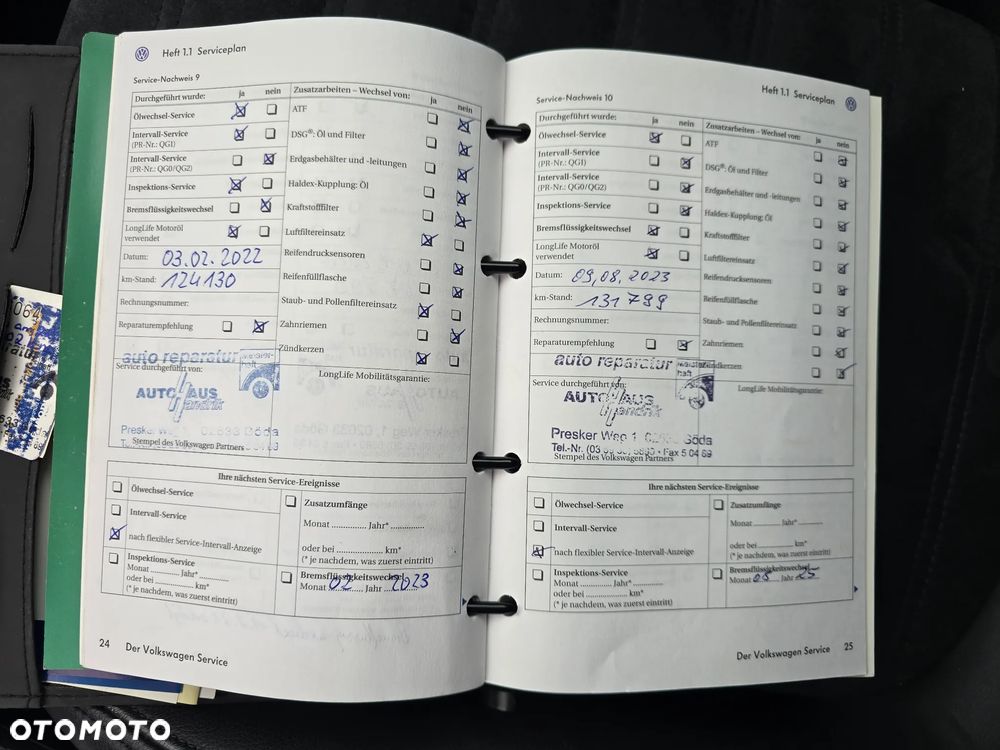 Heft 1.1 Serviceplan
Service-Nachweis 9
Durchgeführt wurde: ja nein
Ölwechsel-Service
Intervall-Service
(PR-Nr.: QG1)
Intervall-Service
(PR-Nr.: QG0/QG2)
Inspektions-Service
Bremsflüssigkeitswechsel
LongLife Motoröl
verwendet
Datum: 03.02.2022
km-Stand: 124130
Rechnungsnummer:
Reparaturempfehlung
auto reparatur meister-
haft
Service durchgeführt von:
AUTOHAUS
Handrik
Presker Weg 1 02633 Göda
Stempel des Volkswagen Partners
Zusatzarbeiten – Wechsel von: ja nein
ATF
DSG®: Öl und Filter
Erdgasbehälter und -leitungen
Haldex-Kupplung: Öl
Kraftstofffilter
Luftfiltereinsatz
Reifendrucksensoren
Reifenfüllflasche
Staub- und Pollenfiltereinsatz
Zahnriemen
Zündkerzen
LongLife Mobilitätsgarantie:
Ihre nächsten Service-Ereignisse
Ölwechsel-Service
Intervall-Service
nach flexibler Service-Intervall-Anzeige
Inspektions-Service
Monat ............ Jahr* ............
oder bei ............ km*
(* je nachdem, was zuerst eintritt)
Zusatzumfänge
Monat ............ Jahr* ............
oder bei ............ km*
(* je nachdem, was zuerst eintritt)
Bremsflüssigkeitswechsel
Monat 02 Jahr 2023
24 Der Volkswagen Service
Heft 1.1 Serviceplan
Service-Nachweis 10
Durchgeführt wurde: ja nein
Ölwechsel-Service
Intervall-Service
(PR-Nr.: QG1)
Intervall-Service
(PR-Nr.: QG0/QG2)
Inspektions-Service
Bremsflüssigkeitswechsel
LongLife Motoröl
verwendet
Datum: 09,08,2023
km-Stand: 131799
Rechnungsnummer:
Reparaturempfehlung
auto reparatur meister
haft
Service durchgeführt von:
AUTOHAUS
Handrik
Presker Weg 1 02633 Göda
Tel.-Nr. Fax 5 04 69
Stempel des Volkswagen Partners
Zusatzarbeiten – Wechsel von: ja nein
ATF
DSG®: Öl und Filter
Erdgasbehälter und -leitungen
Haldex-Kupplung: Öl
Kraftstofffilter
Luftfiltereinsatz
Reifendrucksensoren
Reifenfüllflasche
Staub- und Pollenfiltereinsatz
Zahnriemen
Zündkerzen
LongLife Mobilitätsgarantie:
Ihre nächsten Service-Ereignisse
Ölwechsel-Service
Intervall-Service
nach flexibler Service-Intervall-Anzeige
Inspektions-Service
Monat ............ Jahr* ............
oder bei ............ km*
(* je nachdem, was zuerst eintritt)
Zusatzumfänge
Monat ............ Jahr* ............
oder bei ............ km*
(* je nachdem, was zuerst eintritt)
Bremsflüssigkeitswechsel
Monat 08 Jahr 25
Der Volkswagen Service 25
OTOMOTO